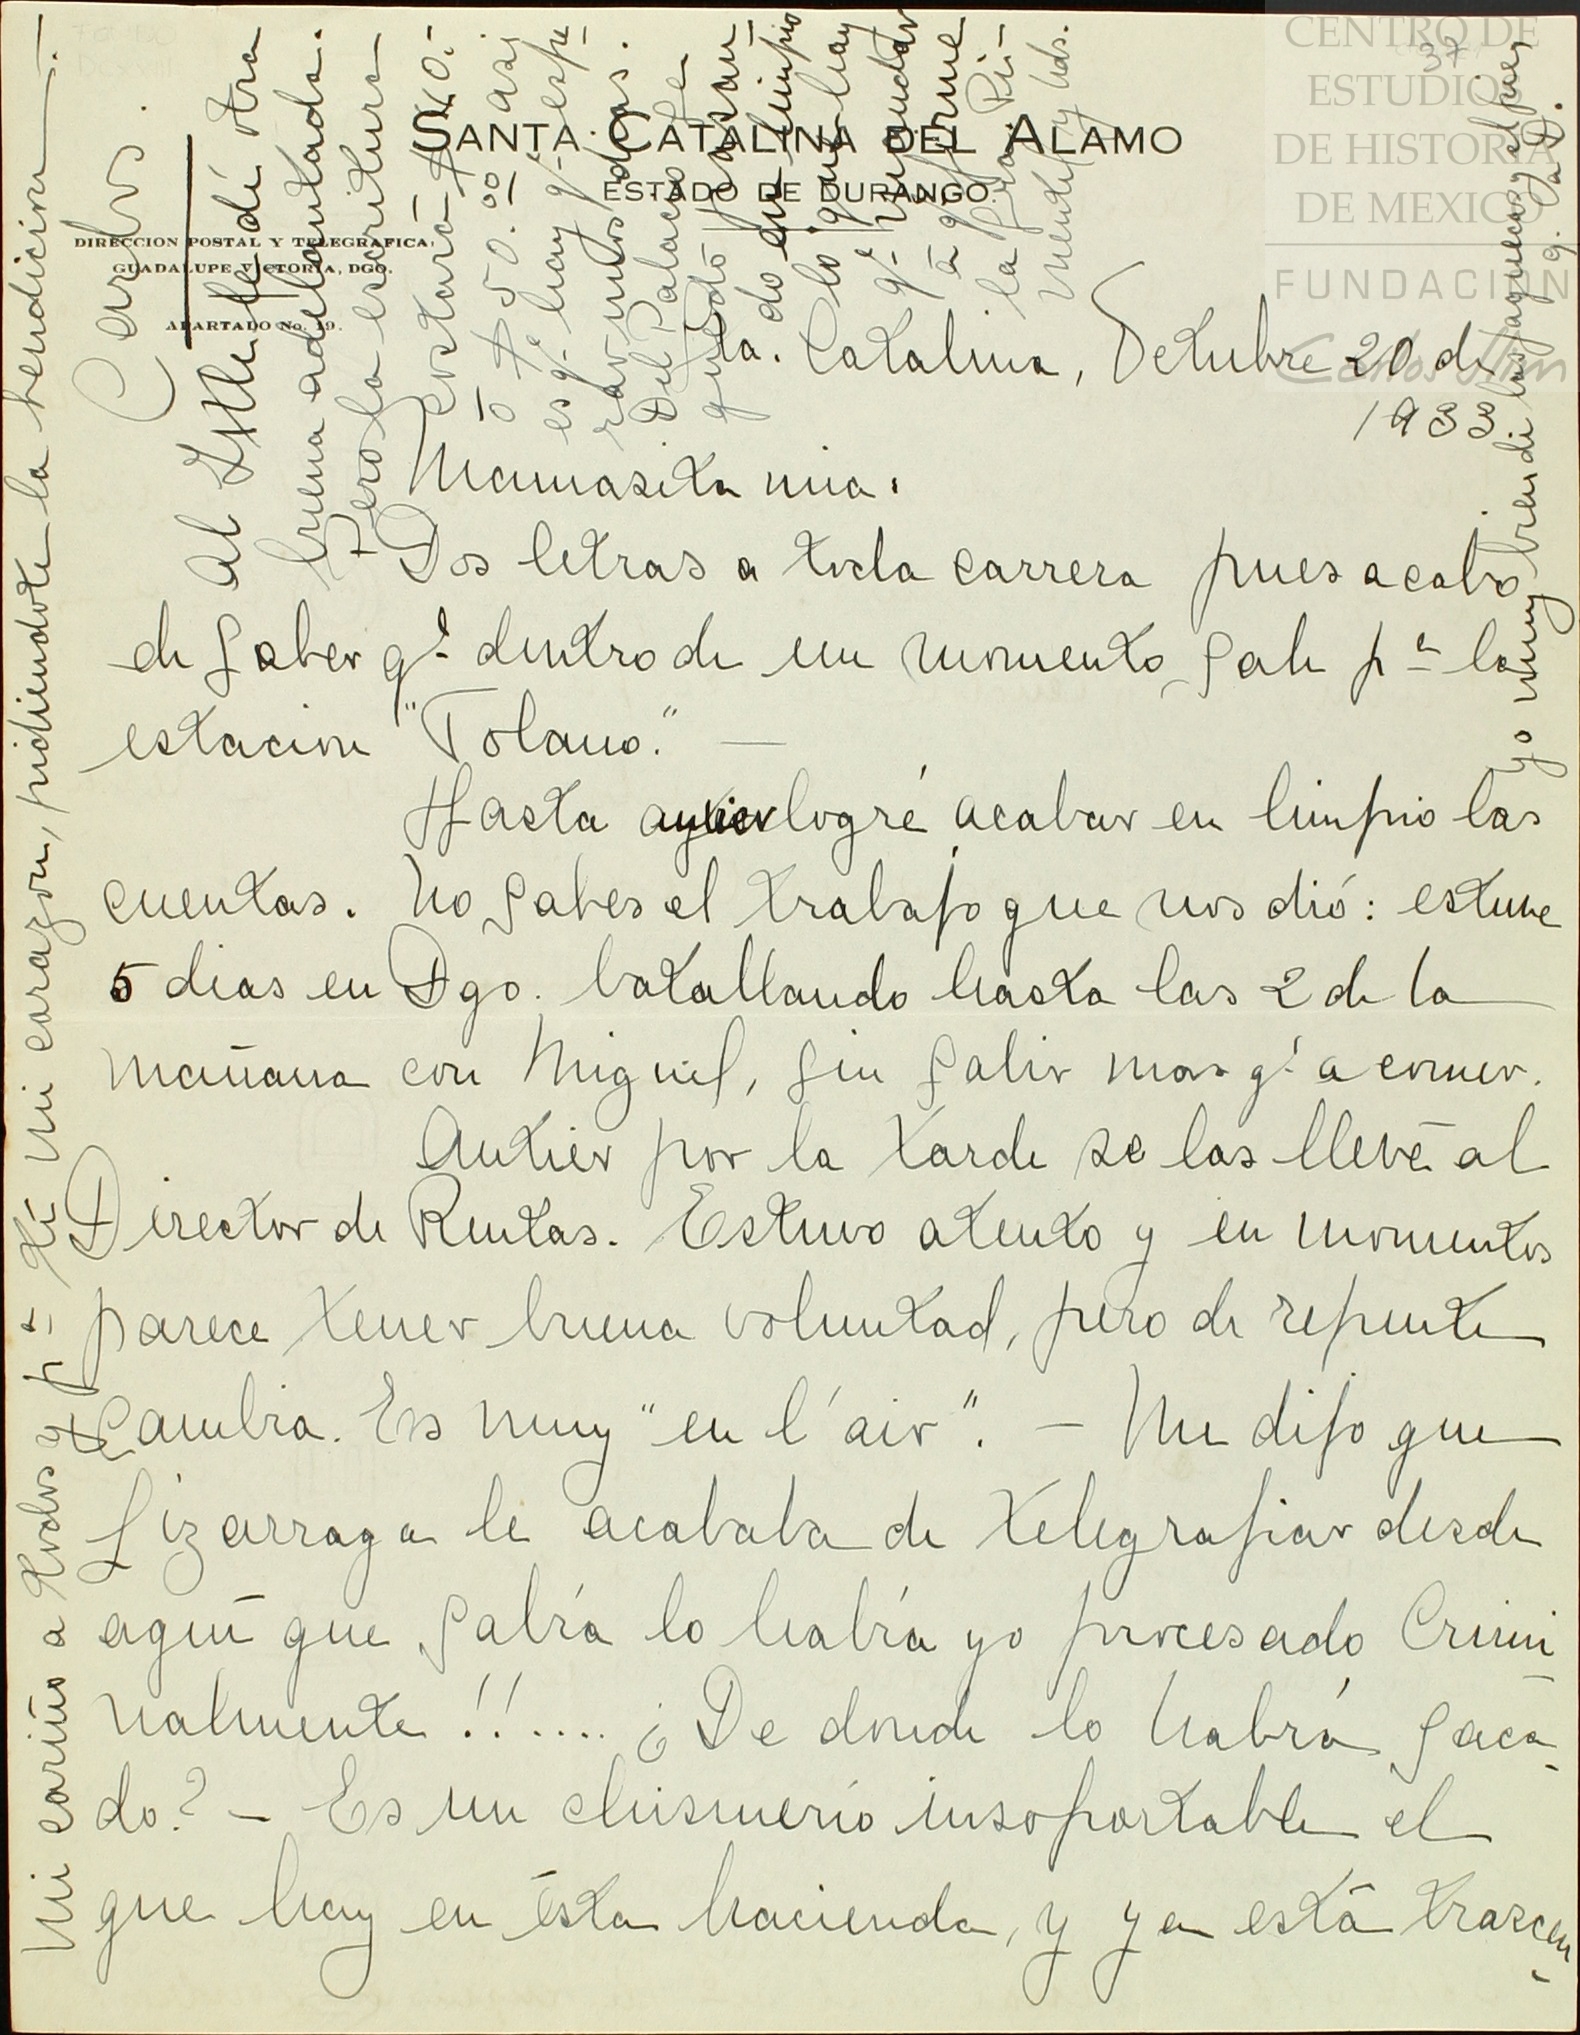 CENTRO DE
ESTUDIOS
DE HISTORIA
DE MEXICO
FUNDACION
Carlos Slim
37
SANTA CATALINA DEL ALAMO
ESTADO DE DURANGO.
DIRECCION POSTAL Y TELEGRAFICA:
GUADALUPE VICTORIA, DGO.
APARTADO No. 19.
Sta. Catalina, Octubre 20 de
1933
Mamasita mia:
Dos letras a toda carrera pues acabo
de saber qe dentro de un momento sale pa la
estacion "Tolano." —
Hasta antier logré acabar en limpio las
cuentas. No sabes el trabajo que nos dió: estuve
5 dias en Dgo. batallando hasta las 2 de la
mañana con Miguel, sin salir mas qe a comer.
Antier por la tarde se las llevé al
Director de Rentas. Estuvo atento y en momentos
parece tener buena voluntad, pero de repente
cambia. Es muy "en l'air". — Me dijo que
Lizarraga le acababa de telegrafiar desde
aquí que sabía lo había yo procesado Crimi-
nalmente!!.... ¿De donde lo habrá saca-
do? — Es un chismerío insoportable el
que hay en ésta hacienda, y ya está trascen-
Mi cariño a todos y pa tí mi corazon, pidiendote la bendicion —.
Carlos.
Al le dí otra
buena adelantada.
Pero la escritura
costará $ 40.-
ó $ 50.00/ así
es qe hay qe espe-
rar unos dias.
Del Palacio se
quedó pasan-
do en limpio
lo que hay
qe mandar
a qe firme
la
y Uds.
yo muy bien de las jaquecas y el pies
g. a D.